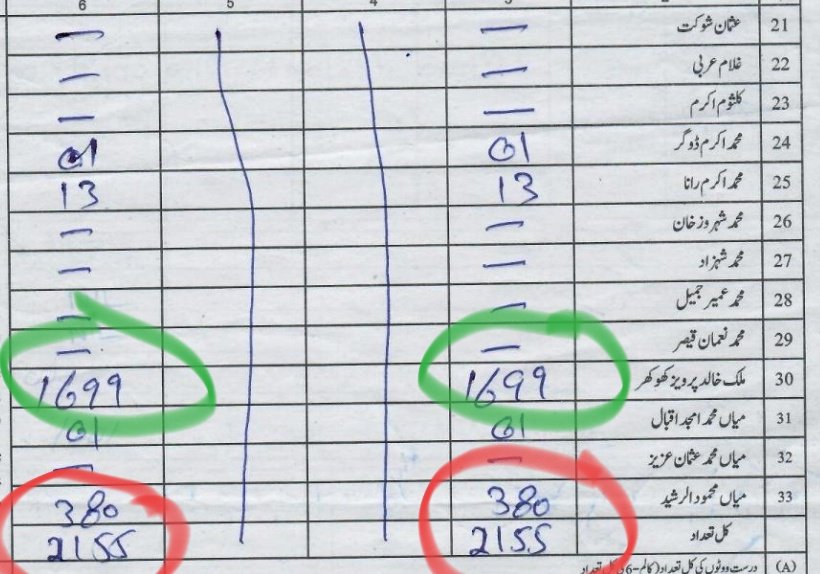 6 5 4 3
— — عثمان شوکت 21
— — غلام عربی 22
— — کلثوم اکرم 23
01 01 محمد اکرم ڈوگر 24
13 13 محمد اکرم رانا 25
— — محمد شہروز خان 26
— — محمد شہزاد 27
— — محمد عمیر جمیل 28
— — محمد نعمان قیصر 29
1699 1699 ملک خالد پرویز کھوکھر 30
01 01 میاں محمد امجد اقبال 31
— — میاں محمد عثمان عزیز 32
380 380 میاں محمود الرشید 33
2155 2155 کل تعداد
(A) درست ووٹوں کی کل تعداد (کالم-6 کی کل تعداد